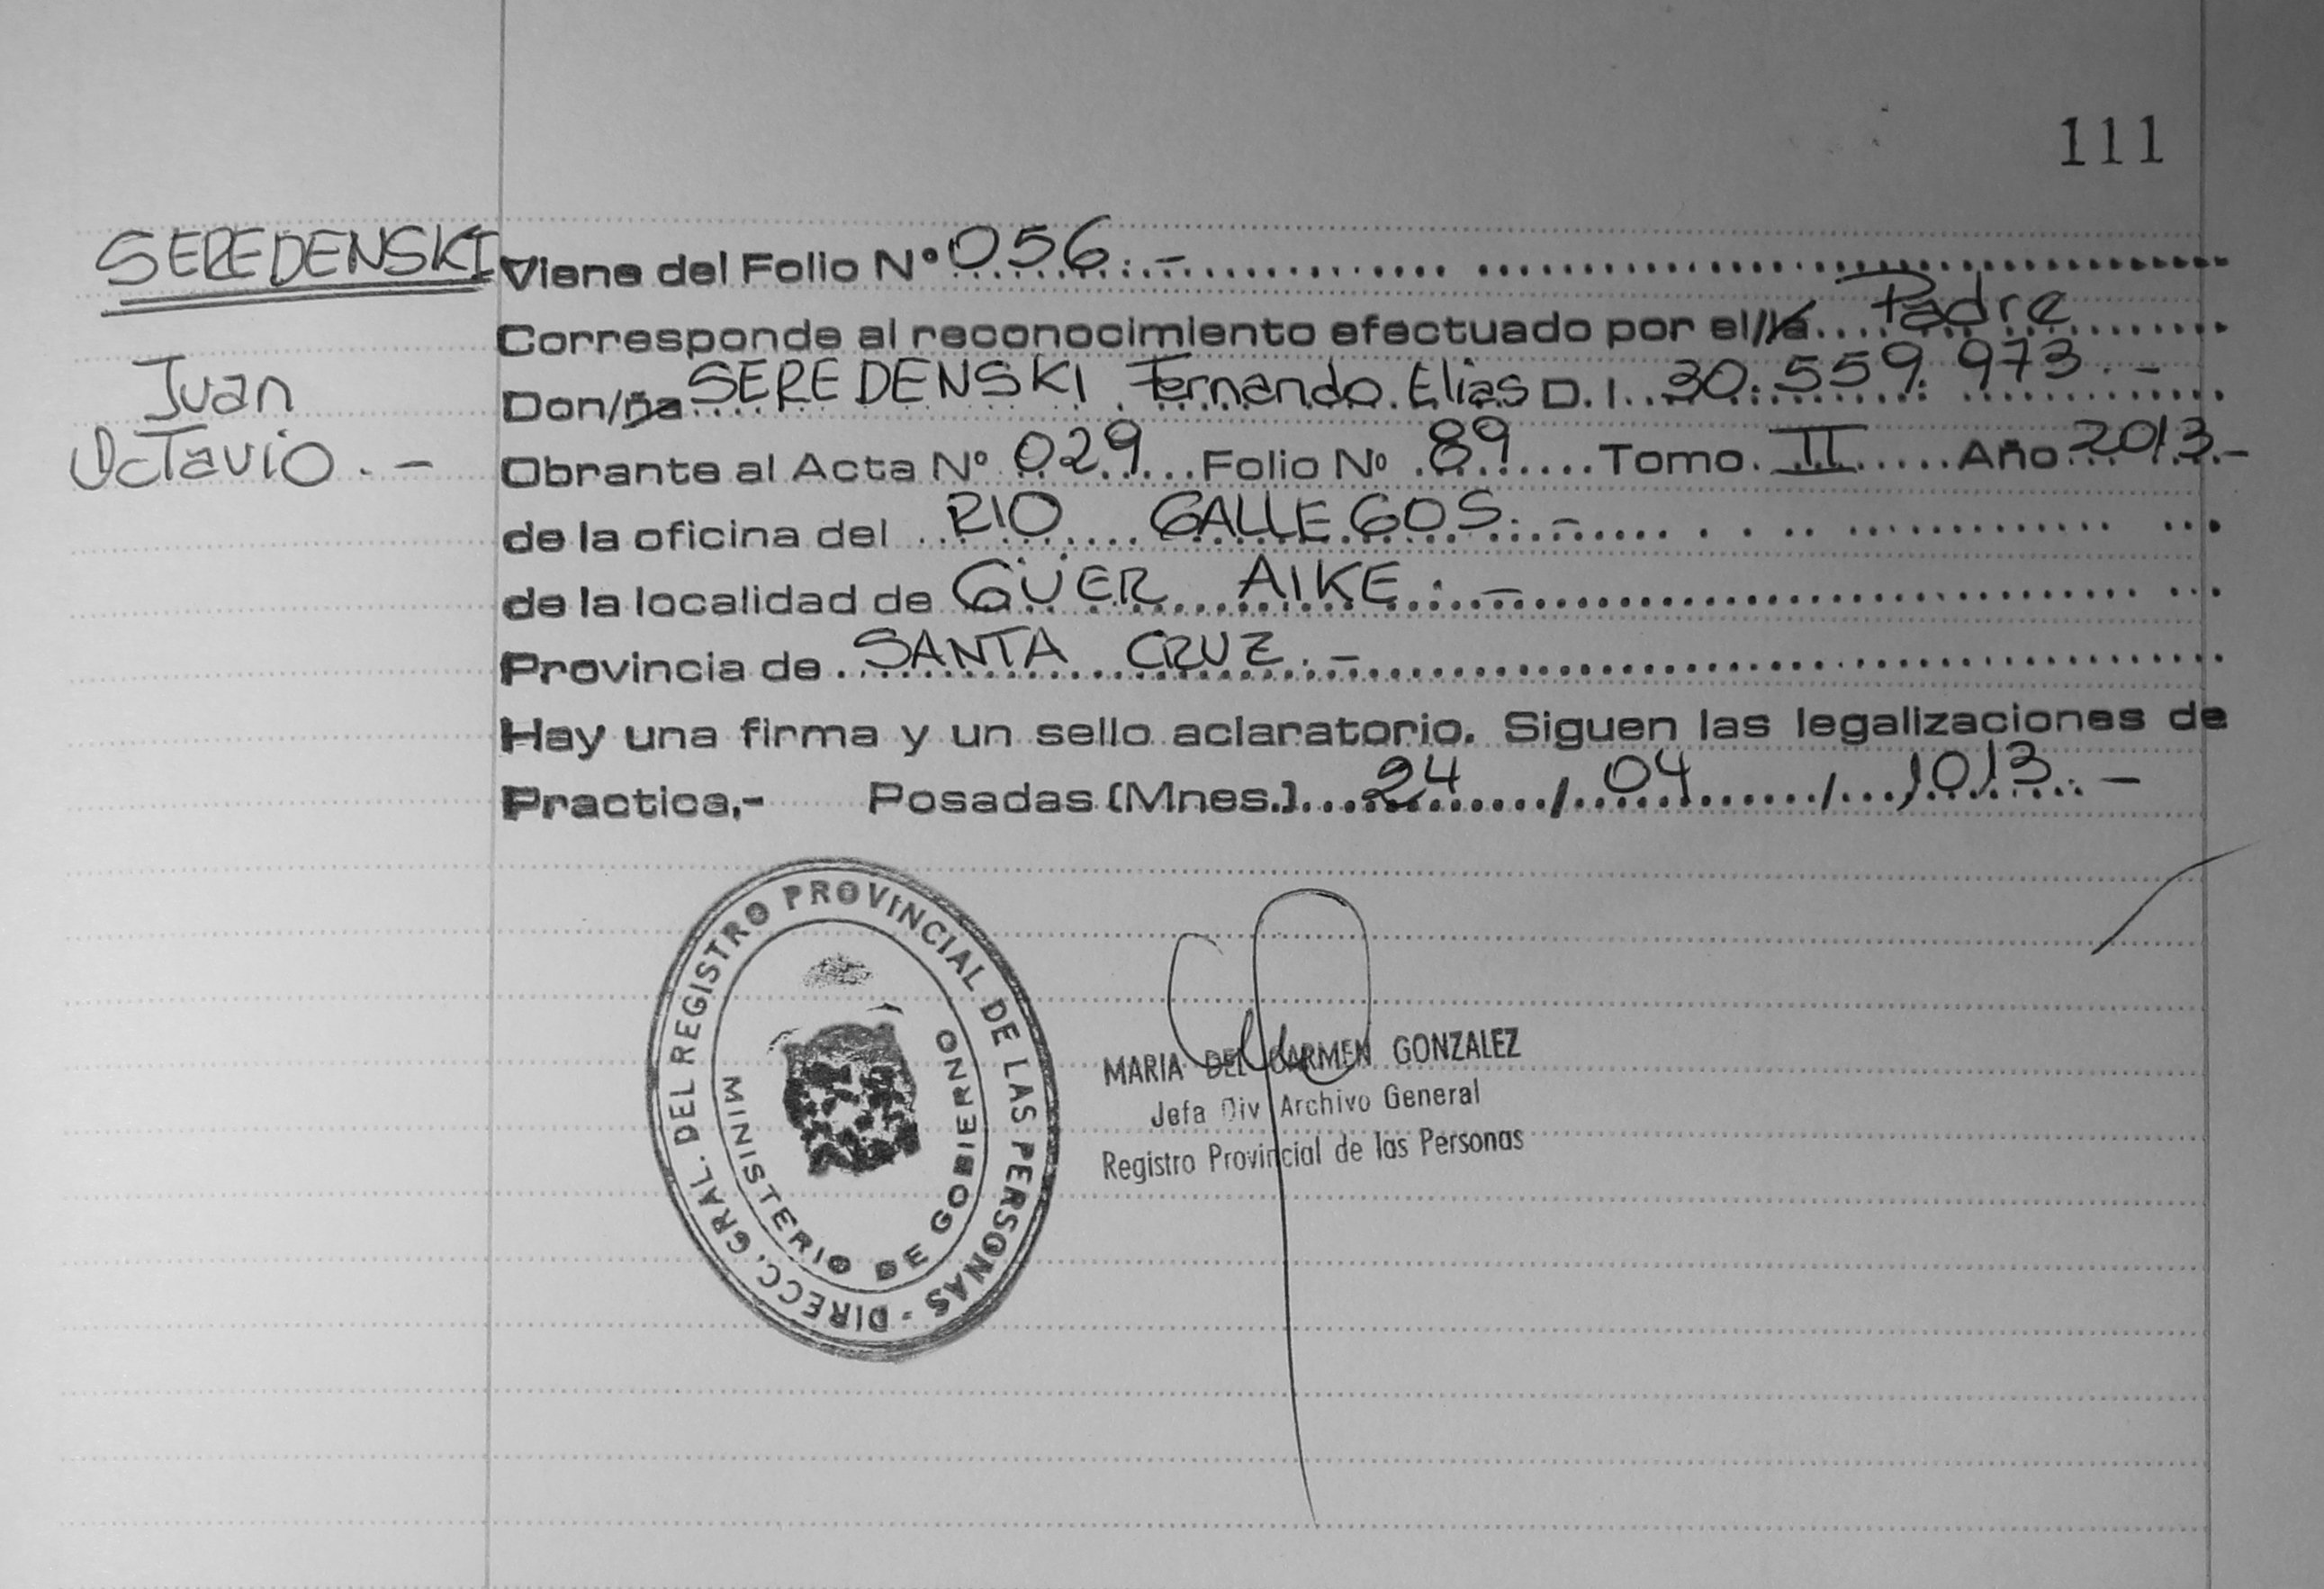 111
SEREDENSKI
Juan
Octavio.-
Viene del Folio N° 056.-
Corresponde al reconocimiento efectuado por el/la Padre
Don/ña SEREDENSKI Fernando Elias D.I. 30.559.973.-
Obrante al Acta N° 029 Folio N° 89 Tomo II Año 2013.-
de la oficina del RIO GALLEGOS.-
de la localidad de GÜER AIKE.-
Provincia de SANTA CRUZ.-
Hay una firma y un sello aclaratorio. Siguen las legalizaciones de
Practica,- Posadas (Mnes.) 24 / 04 / 1013.-
DIRECC. GRAL. DEL REGISTRO PROVINCIAL DE LAS PERSONAS -
MINISTERIO DE GOBIERNO
MARIA DEL CARMEN GONZALEZ
Jefa Div Archivo General
Registro Provincial de las Personas